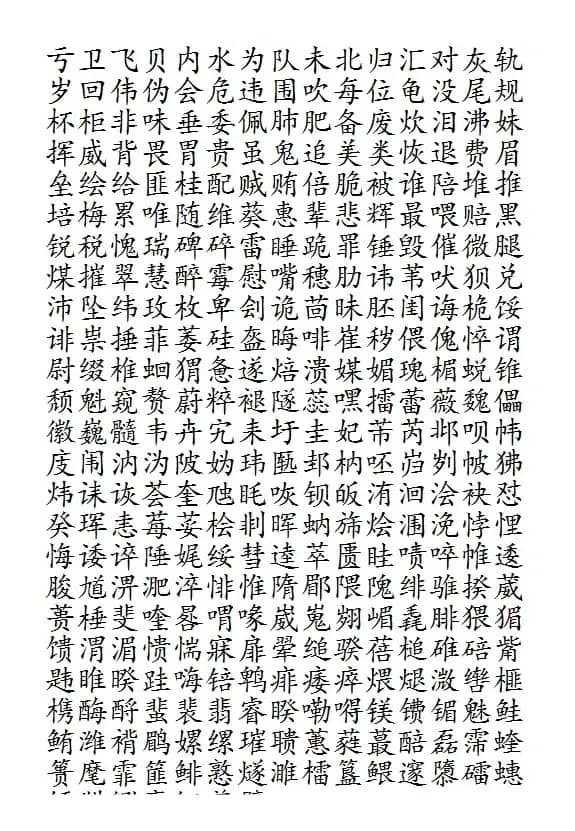 亏卫飞贝内水为队未北归汇对灰轨
岁回伟伪会危违围吹每位龟没尾规
杯柜非味垂委佩肺肥备废炊泪沸妹
挥威背畏胃贵虽鬼追美类恢退费眉
垒绘给匪桂配贼贿倍脆被谁陪堆推
培梅累唯随维葵惠辈悲辉最喂赔黑
锐税愧瑞碑碎雷睡跪罪锤毁催微腿
煤摧翠慧醉霉慰嘴穗肋讳苇吠狈兑
沛坠纬玫枚卑刽诡茴昧胚闺诲桅馁
诽祟捶菲萎硅盔晦啡崔秽偎傀悴谓
尉缀椎蛔猬惫遂焙溃媒媚瑰楣蜕锥
颓魁窥赘蔚粹褪隧蕊嘿擂蕾薇魏儡
徽巍髓韦卉宄耒圩圭妃芾芮邶呗帏
庋闱汭沩陂妫玮匦邽枘呸岿刿帔狒
炜诔诙荟奎虺眊咴钡皈洧洄浍袂怼
癸珲恚莓荽桧剕晖蚋旆烩涠浼悖悝
悔诿谇陲娓绥彗逵萃匮眭啧啐帷逶
脧馗淠淝淬悱惟隋郿隈隗绯骓揆葳
蒉棰斐喹晷喟喙崴嵬翙嵋毳腓猥猸
馈渭湄愦惴寐扉翚缒骙蓓槌碓碚觜
韪睢暌跬嗨锫鹎痱痿瘁煨煺溦辔榧
槜酶酹蜚裴翡睿睽嘞嘚镁镄镅魅鲑
鲔潍褙鹛嫘缧璀聩蕙蕤蕞醅磊霈蝰
篑麾霏篚鲱憝燧濉檑簋鳂邃隳礌蟪